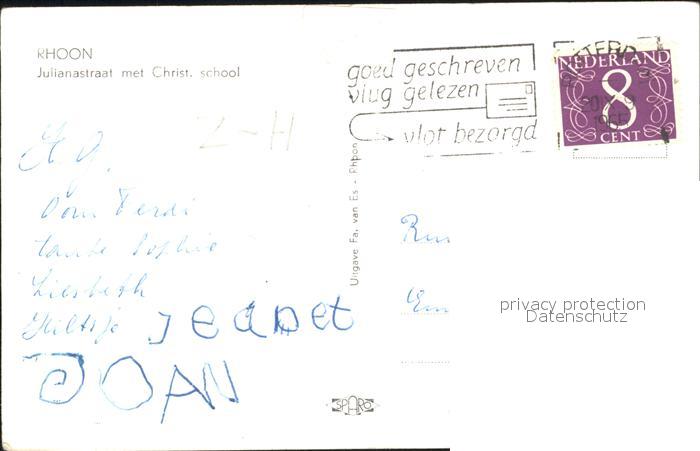 RHOON
Julianastraat met Christ. school
Z-H
goed geschreven
vlug gelezen
vlot bezorgd
NEDERLAND
8
CENT
Uitgave Fa. van Es - Rhoon
Oom Ferdi
tante Sophie
Liesbeth
Hiltsje Jeanet
JOAN
SPARO
privacy protection
Datenschutz